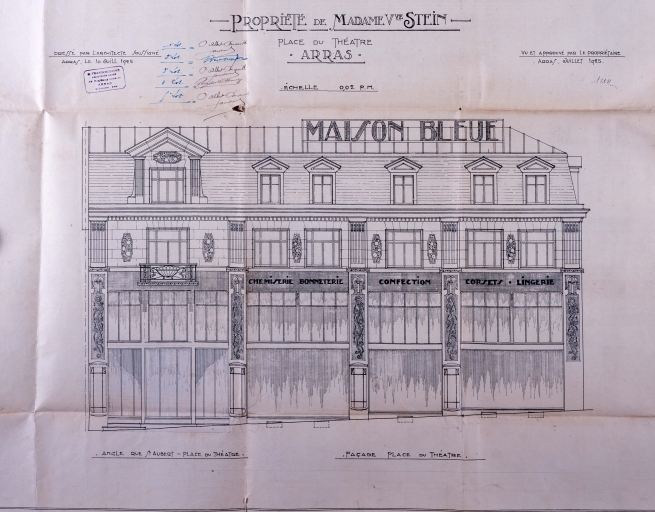 PROPRIÉTÉ DE MADAME Vve STEIN
PLACE DU THÉATRE
· ARRAS ·
ÉCHELLE 0,02 P.M.
DRESSÉ PAR L'ARCHITECTE SOUSSIGNÉ
ARRAS, LE 10 JUILL 1925
VU ET APPROUVÉ PAR LE PROPRIÉTAIRE
ARRAS, JUILLET 1925.
MAISON BLEUE
CHEMISERIE BONNETERIE
CONFECTION
CORSETS · LINGERIE
· ANGLE RUE St AUBERT - PLACE DU THÉATRE ·
· FAÇADE PLACE DU THÉATRE ·